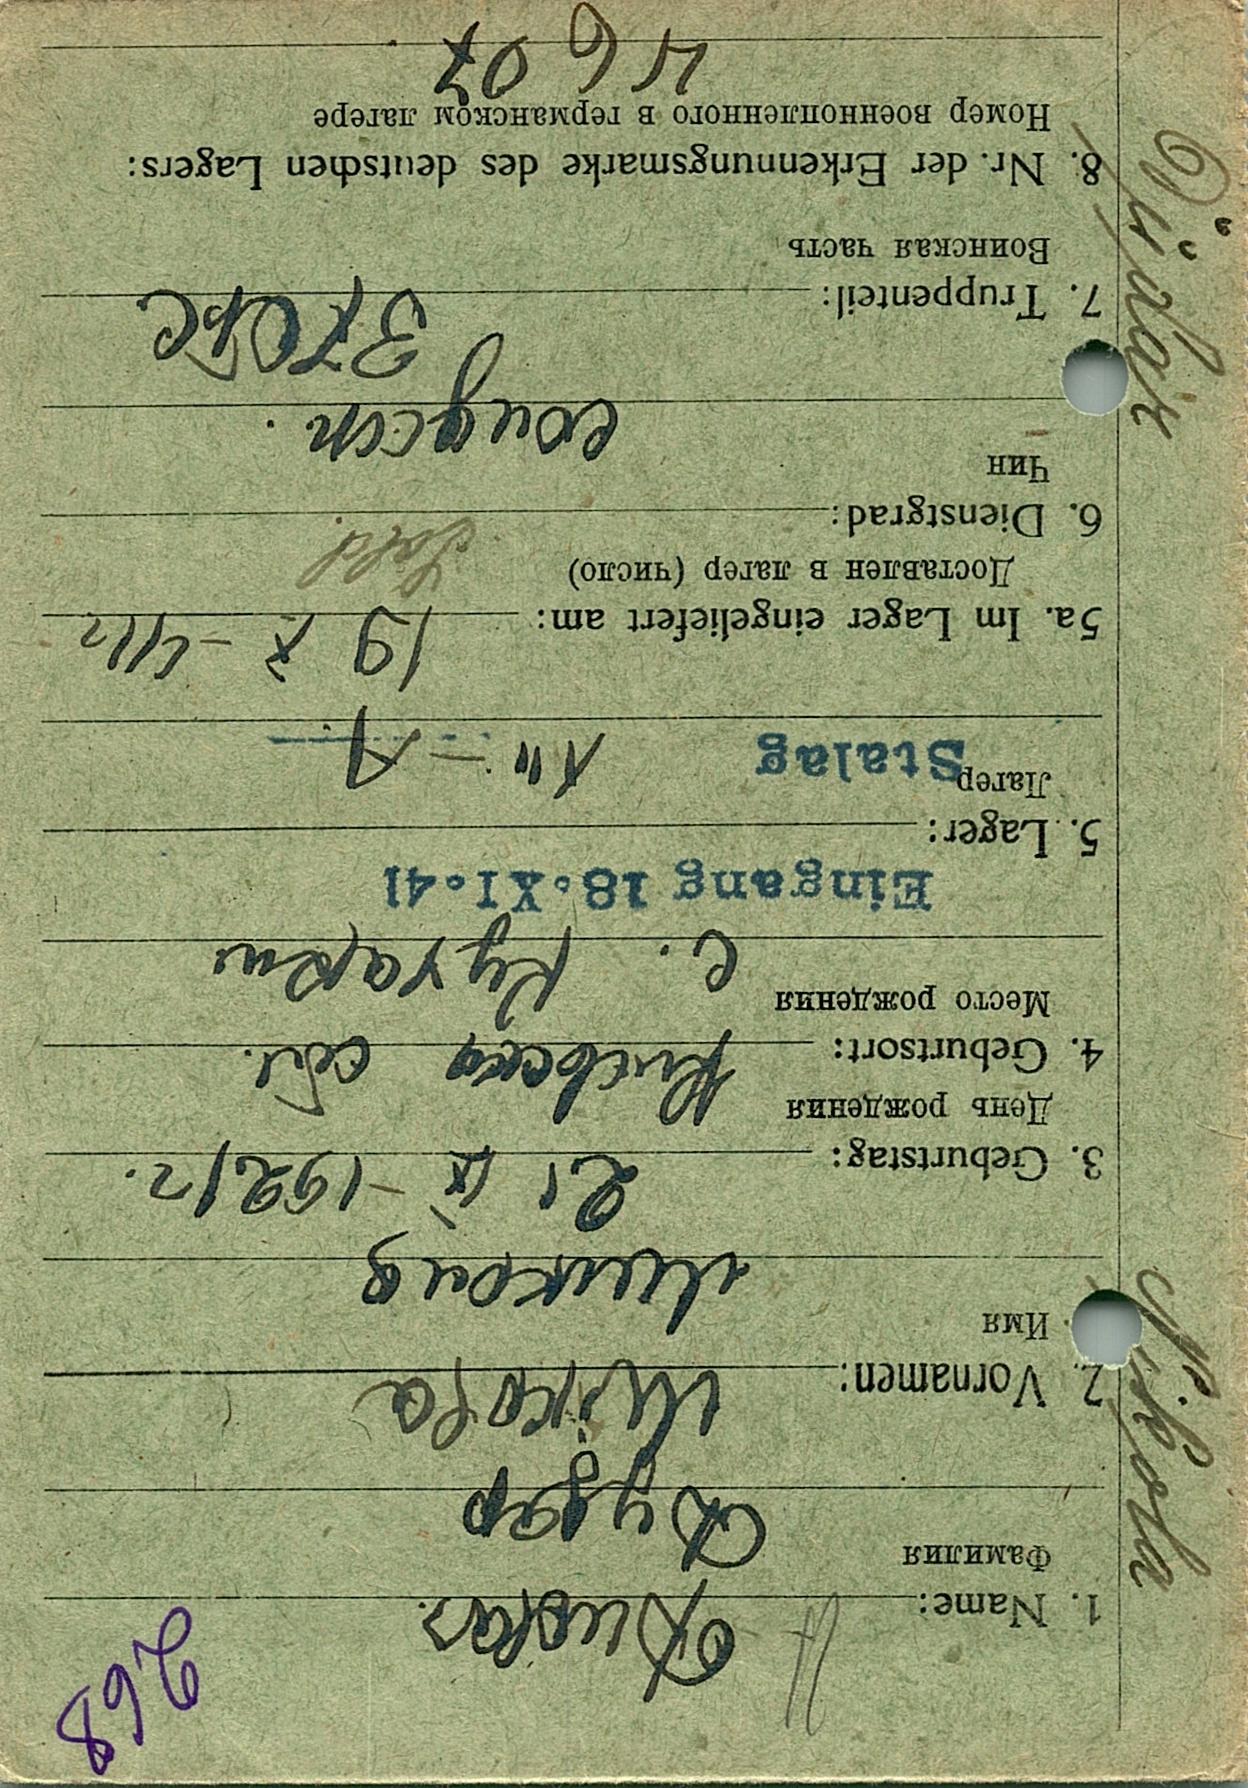 268
1. Name:
Фамилия
Дудар
2. Vornamen:
Имя
Микола
3. Geburtstag:
День рождения
21 IX - 1921 г.
4. Geburtsort:
Место рождения
Киевска обл.
с.
Eingang 18.XI.41
5. Lager:
Лагер
Stalag
XII - A
5a. Im Lager eingeliefert am:
Доставлен в лагер (число)
19 X - 41 г
Sold.
6. Dienstgrad:
Чин
7. Truppenteil:
Воинская часть
8. Nr. der Erkennungsmarke des deutschen Lagers:
Номер военнопленного в германском лагере
4607
Nikola